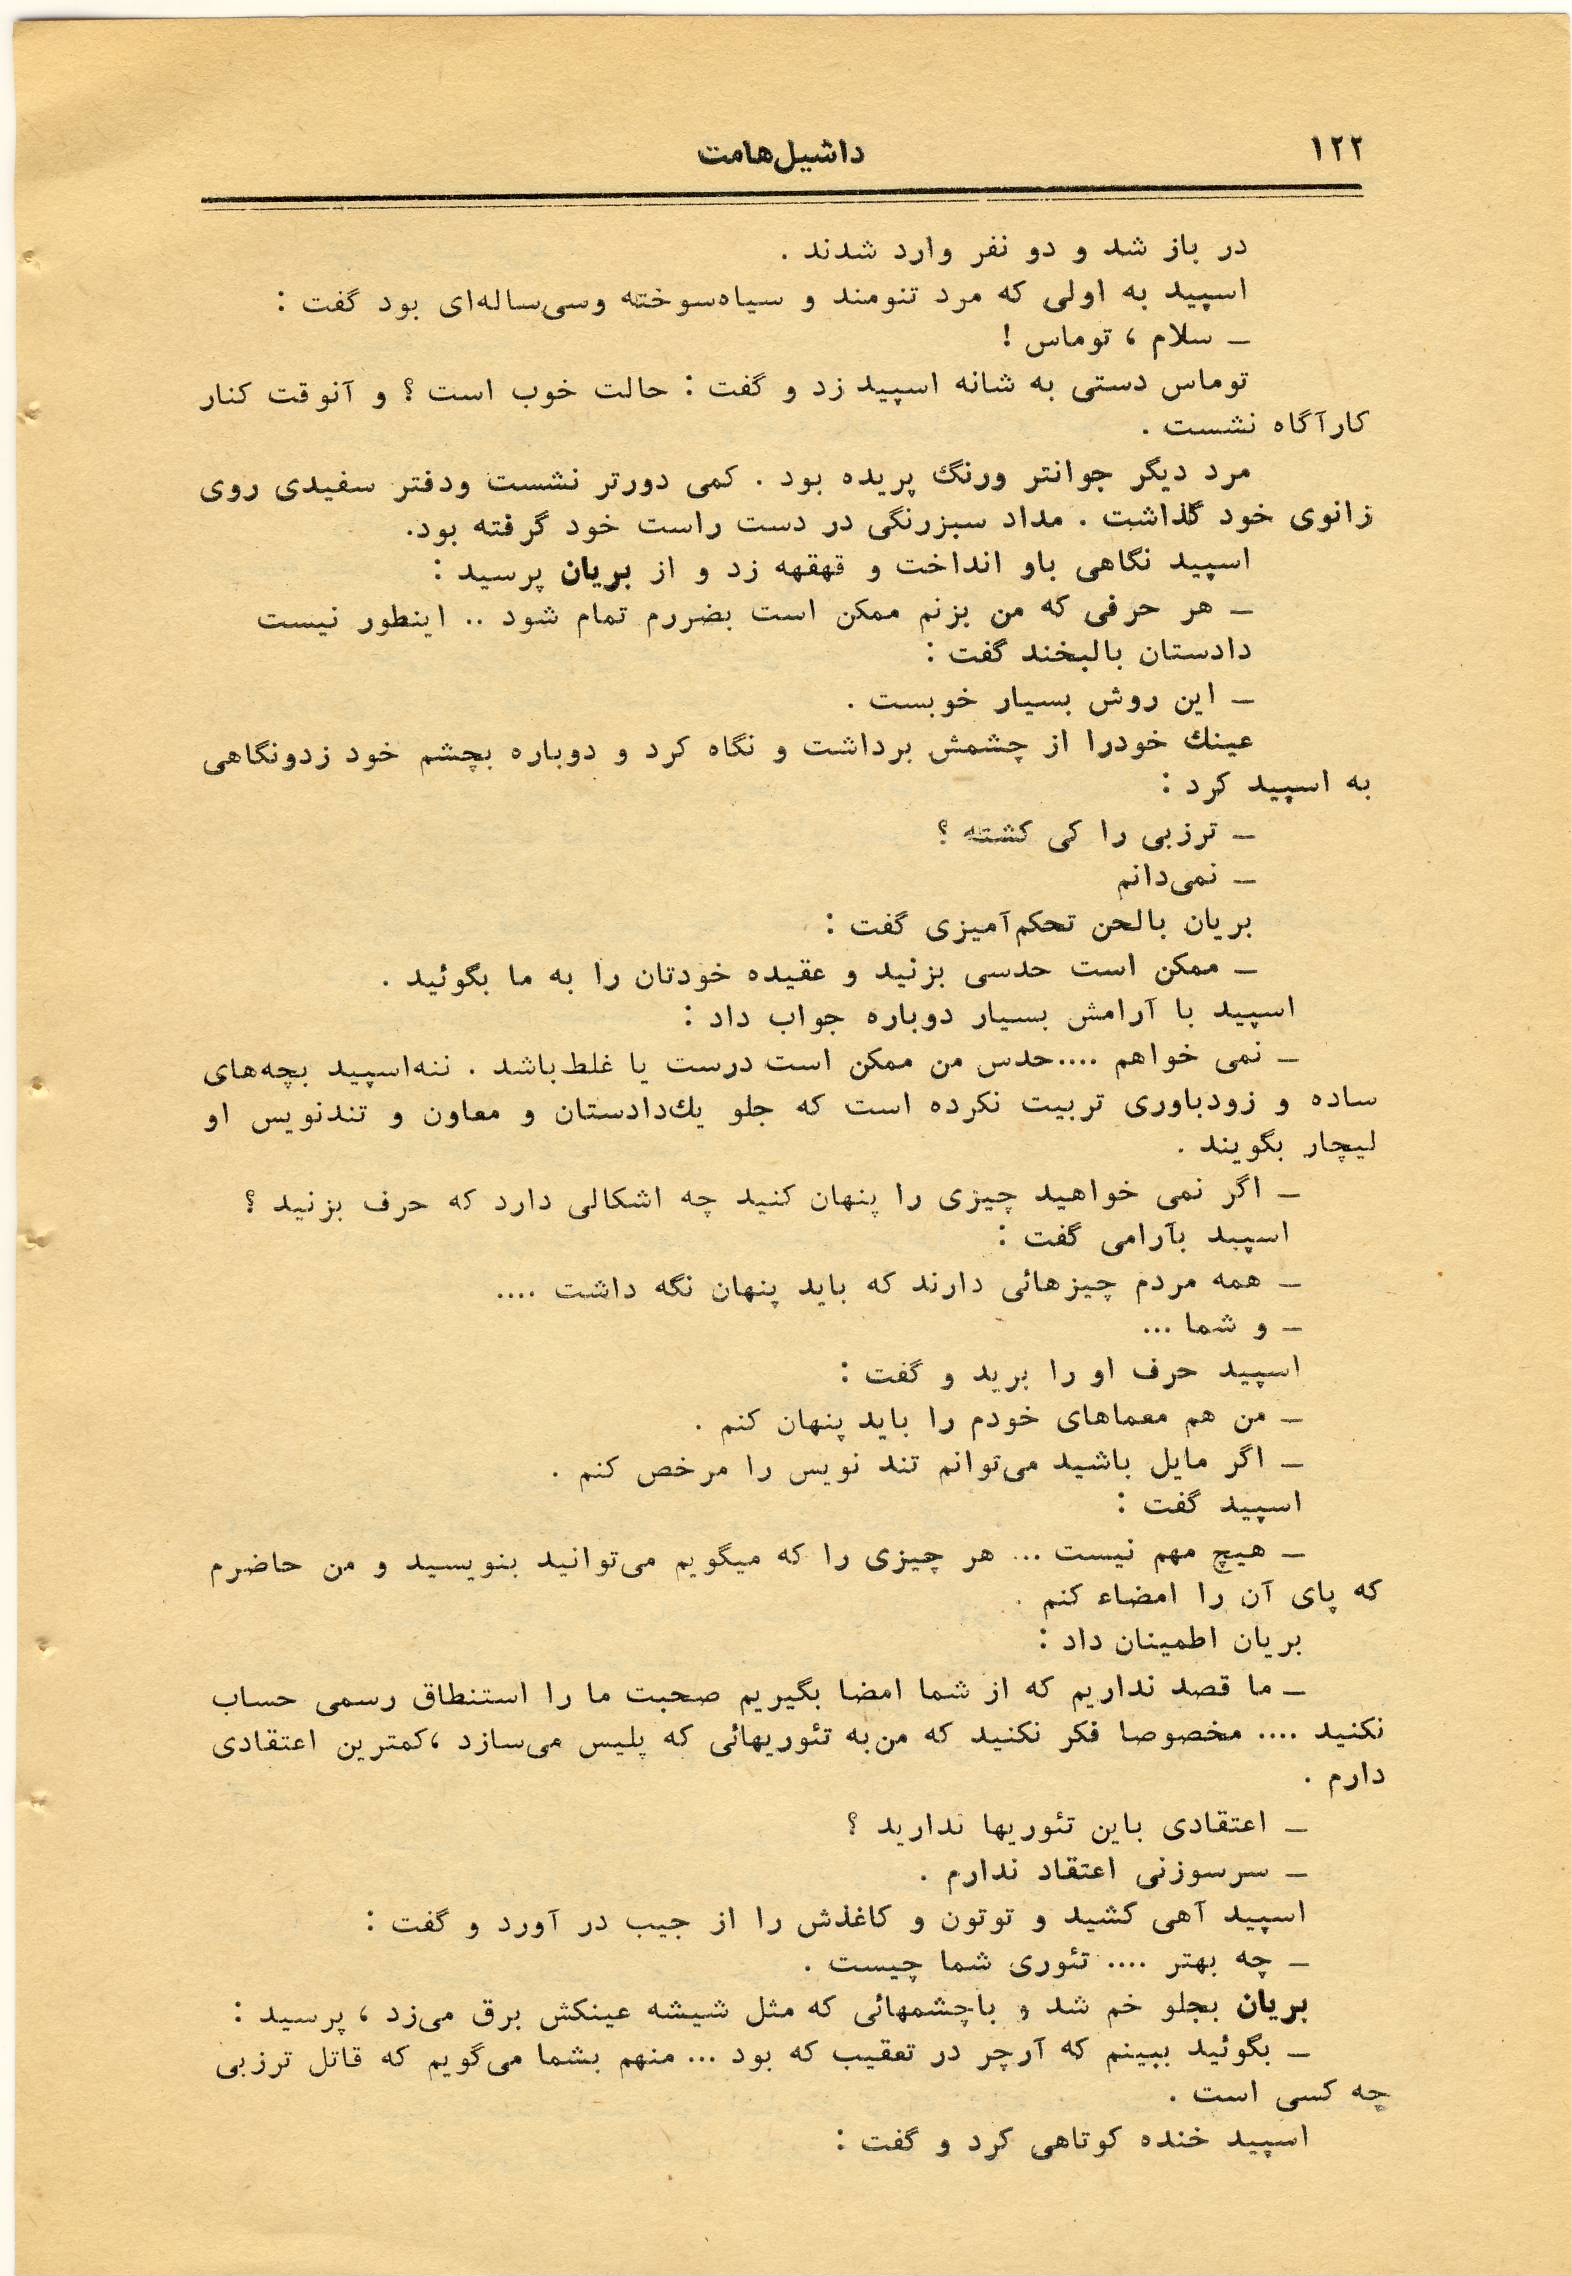 ۱۲۲
داشیل‌هامت
در باز شد و دو نفر وارد شدند .
اسپید به اولی که مرد تنومند و سیاه‌سوخته وسی‌ساله‌ای بود گفت :
ـ سلام ، توماس !
توماس دستی به شانه اسپید زد و گفت : حالت خوب است ؟ و آنوقت کنار
کارآگاه نشست .
مرد دیگر جوانتر ورنگ پریده بود . کمی دورتر نشست ودفتر سفیدی روی
زانوی خود گذاشت . مداد سبزرنگی در دست راست خود گرفته بود.
اسپید نگاهی باو انداخت و قهقهه زد و از بریان پرسید :
ـ هر حرفی که من بزنم ممکن است بضررم تمام شود .. اینطور نیست
دادستان بالبخند گفت :
ـ این روش بسیار خوبست .
عینك خودرا از چشمش برداشت و نگاه کرد و دوباره بچشم خود زدونگاهی
به اسپید کرد :
ـ ترزبی را کی کشته ؟
ـ نمی‌دانم
بریان بالحن تحکم‌آمیزی گفت :
ـ ممکن است حدسی بزنید و عقیده خودتان را به ما بگوئید .
اسپید با آرامش بسیار دوباره جواب داد :
ـ نمی خواهم ....حدس من ممکن است درست یا غلط‌باشد . ننه‌اسپید بچه‌های
ساده و زودباوری تربیت نکرده است که جلو یك‌دادستان و معاون و تندنویس او
لیچار بگویند .
ـ اگر نمی خواهید چیزی را پنهان کنید چه اشکالی دارد که حرف بزنید ؟
اسپید بآرامی گفت :
ـ همه مردم چیزهائی دارند که باید پنهان نگه داشت ....
ـ و شما ...
اسپید حرف او را برید و گفت :
ـ من هم معماهای خودم را باید پنهان کنم .
ـ اگر مایل باشید می‌توانم تند نویس را مرخص کنم .
اسپید گفت :
ـ هیچ مهم نیست ... هر چیزی را که میگویم می‌توانید بنویسید و من حاضرم
که پای آن را امضاء کنم .
بریان اطمینان داد :
ـ ما قصد نداریم که از شما امضا بگیریم صحبت ما را استنطاق رسمی حساب
نکنید .... مخصوصا فکر نکنید که من‌به تئوریهائی که پلیس می‌سازد ،کمترین اعتقادی
دارم .
ـ اعتقادی باین تئوریها ندارید ؟
ـ سرسوزنی اعتقاد ندارم .
اسپید آهی کشید و توتون و کاغذش را از جیب در آورد و گفت :
ـ چه بهتر .... تئوری شما چیست .
بریان بجلو خم شد و باچشمهائی که مثل شیشه عینکش برق می‌زد ، پرسید :
ـ بگوئید ببینم که آرچر در تعقیب که بود ... منهم بشما می‌گویم که قاتل ترزبی
چه کسی است .
اسپید خنده کوتاهی کرد و گفت :